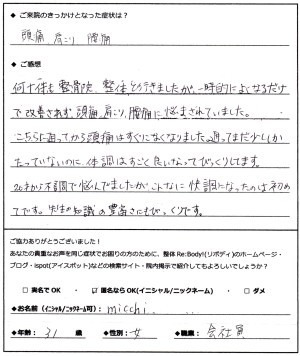 ◆ ご来院のきっかけとなった症状は?
頭痛 肩こり 腰痛
◆ ご感想
何十件も整骨院、整体と行きましたが、一時的によくなるだけ
で改善されず、頭痛、肩こり、腰痛に悩まされていました。
こちらに通ってから頭痛はすぐになくなりました。通ってまだ少ししか
たっていないのに、体調はすごく良いなってびっくりしてます。
20才から不調で悩んでましたがこんなに快調になったのは初め
てです。先生の知識の豊富さにもびっくりです。
ご協力ありがとうございました!
あなたの貴重なお声を同じ症状でお困りの方のために、整体 Re:Body!(リボディ)のホームページ・
ブログ・ispot(アイスポット)などの検索サイト・院内掲示で紹介してもよろしいでしょうか?
□ 実名で OK ・ ☑ 匿名なら OK(イニシャル/ニックネーム) ・ □ ダメ
◆お名前(イニシャル/ニックネーム可): micchi
◆年齢: 31 歳 ◆性別: 女 ◆職業: 会社員